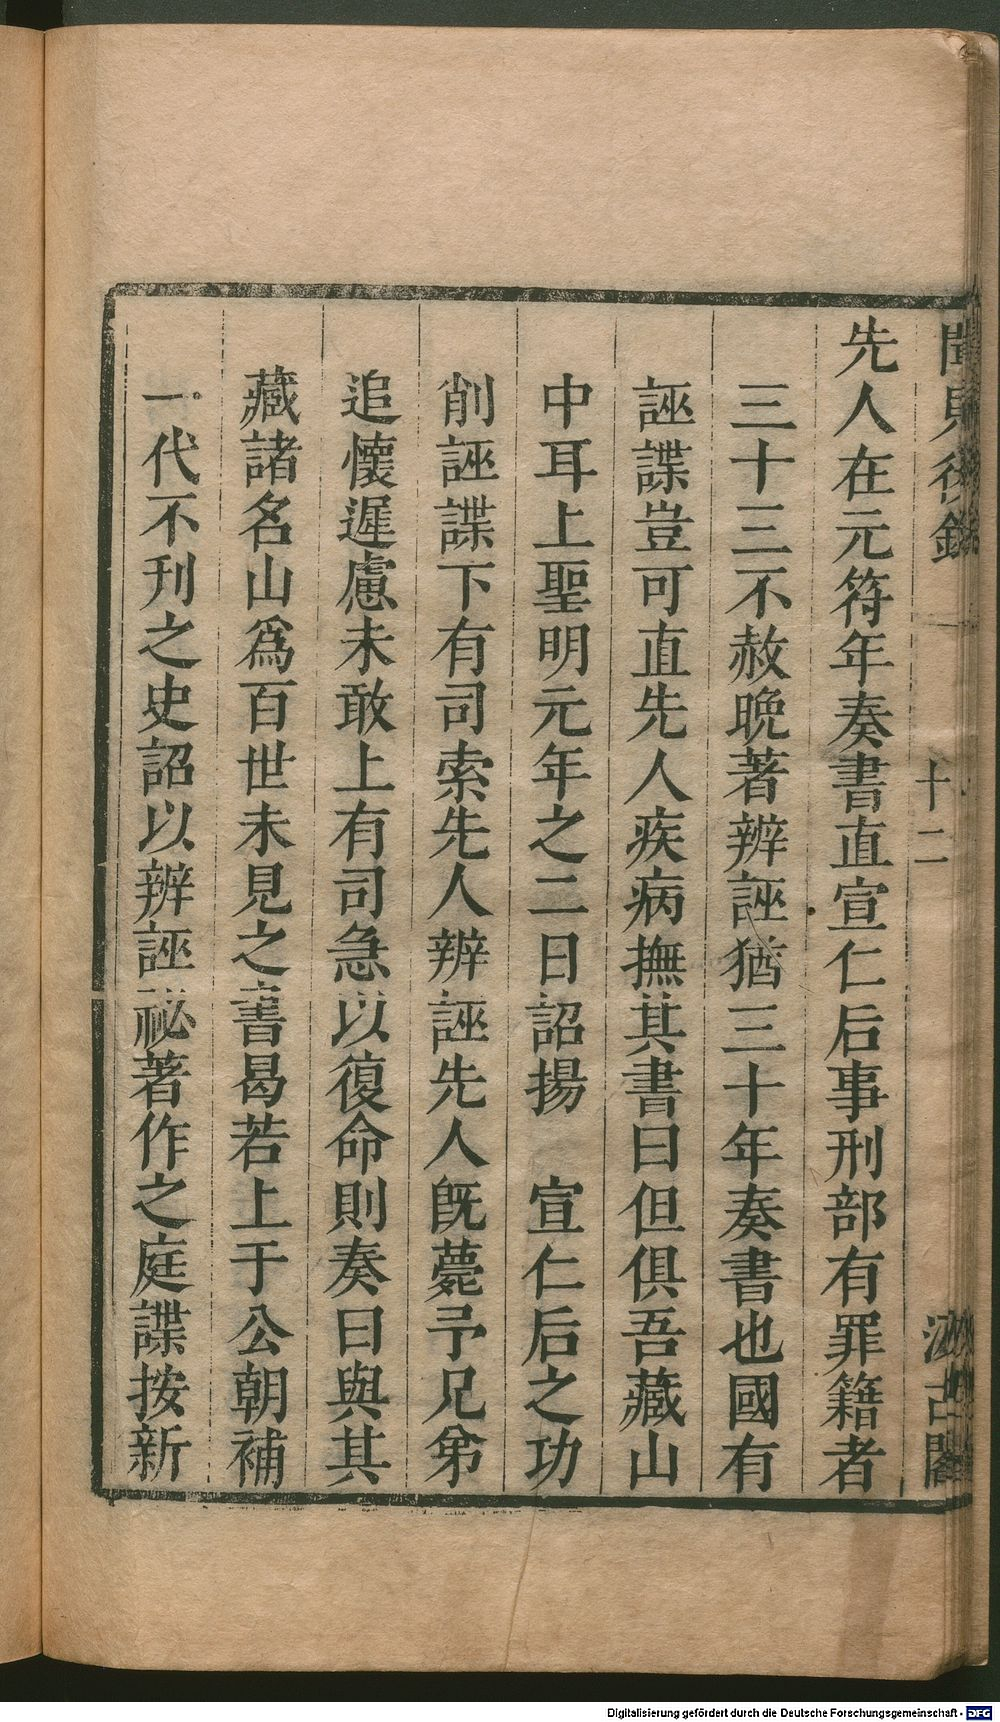 聞見後錄
十二
汲古閣
先人在元符年奏書直宣仁后事刑部有罪籍者
三十三不赦晚著辨誣猶三十年奏書也國有
誣諜豈可直先人疾病撫其書曰但俱吾藏山
中耳上聖明元年之二日詔揚 宣仁后之功
削誣諜下有司索先人辨誣先人既薨予兄弟
追懷遲慮未敢上有司急以復命則奏曰與其
藏諸名山爲百世未見之書曷若上于公朝補
一代不刊之史詔以辨誣祕著作之庭諜按新
Digitalisierung gefördert durch die Deutsche Forschungsgemeinschaft - DFG